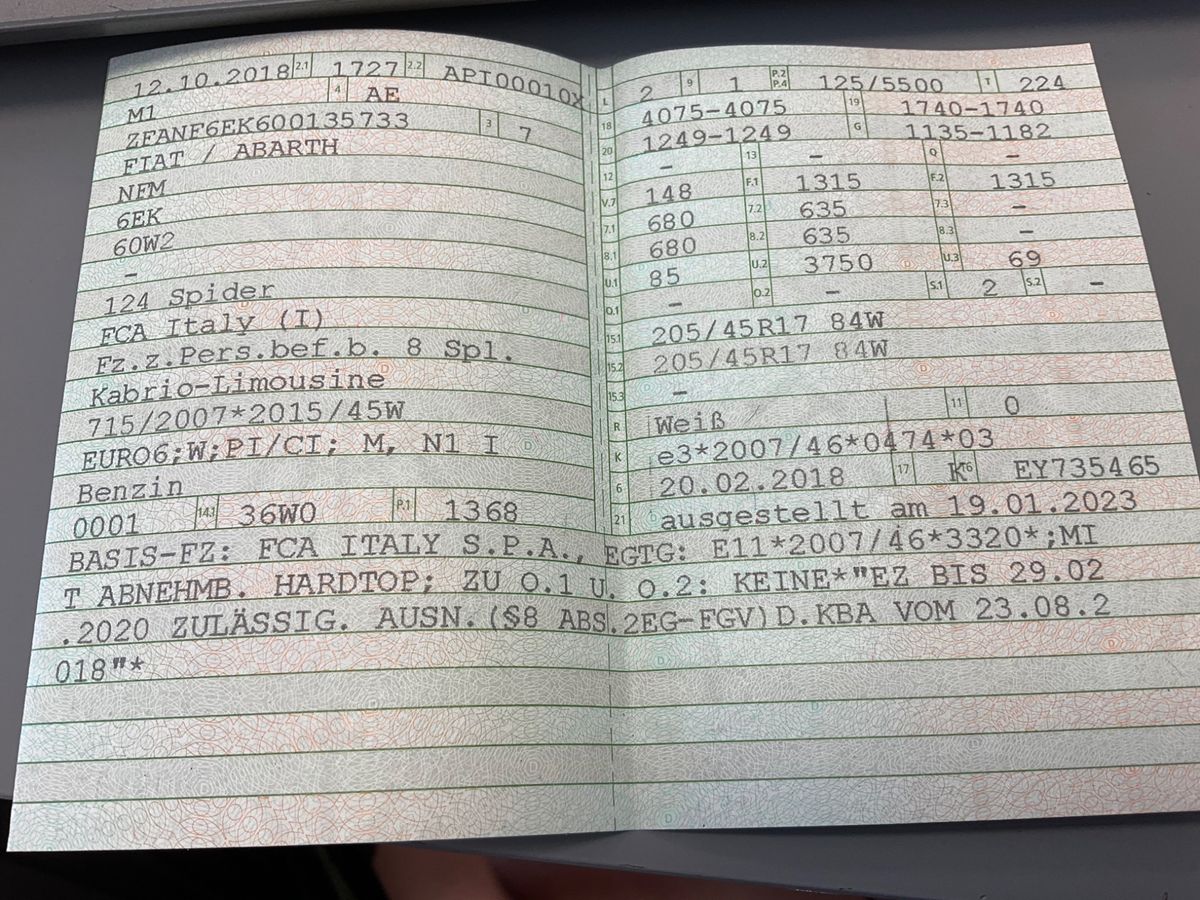 12.10.2018 2.1 1727 2.2 API00010X
M1 4 AE
ZFANF6EK600135733 3 7
FIAT / ABARTH
NFM
6EK
60W2
–
124 Spider
FCA Italy (I)
Fz.z.Pers.bef.b. 8 Spl.
Kabrio-Limousine
715/2007*2015/45W
EURO6;W;PI/CI; M, N1 I
Benzin
0001 14.1 36W0 P.1 1368
L 2 9 1 P.2 P.4 125/5500 T 224
18 4075-4075 19 1740-1740
20 1249-1249 G 1135-1182
12 – 13 – Q –
V.7 148 F.1 1315 F.2 1315
7.1 680 7.2 635 7.3 –
8.1 680 8.2 635 8.3 –
U.1 85 U.2 3750 U.3 69
O.1 – O.2 – S.1 2 S.2 –
15.1 205/45R17 84W
15.2 205/45R17 84W
15.3 –
R Weiß 11 0
K e3*2007/46*0474*03
6 20.02.2018 17 K 16 EY735465
21 ausgestellt am 19.01.2023
BASIS-FZ: FCA ITALY S.P.A., EGTG: E11*2007/46*3320*;MI
T ABNEHMB. HARDTOP; ZU O.1 U. O.2: KEINE*"EZ BIS 29.02
.2020 ZULÄSSIG. AUSN.($8 ABS.2EG-FGV)D.KBA VOM 23.08.2
018"*